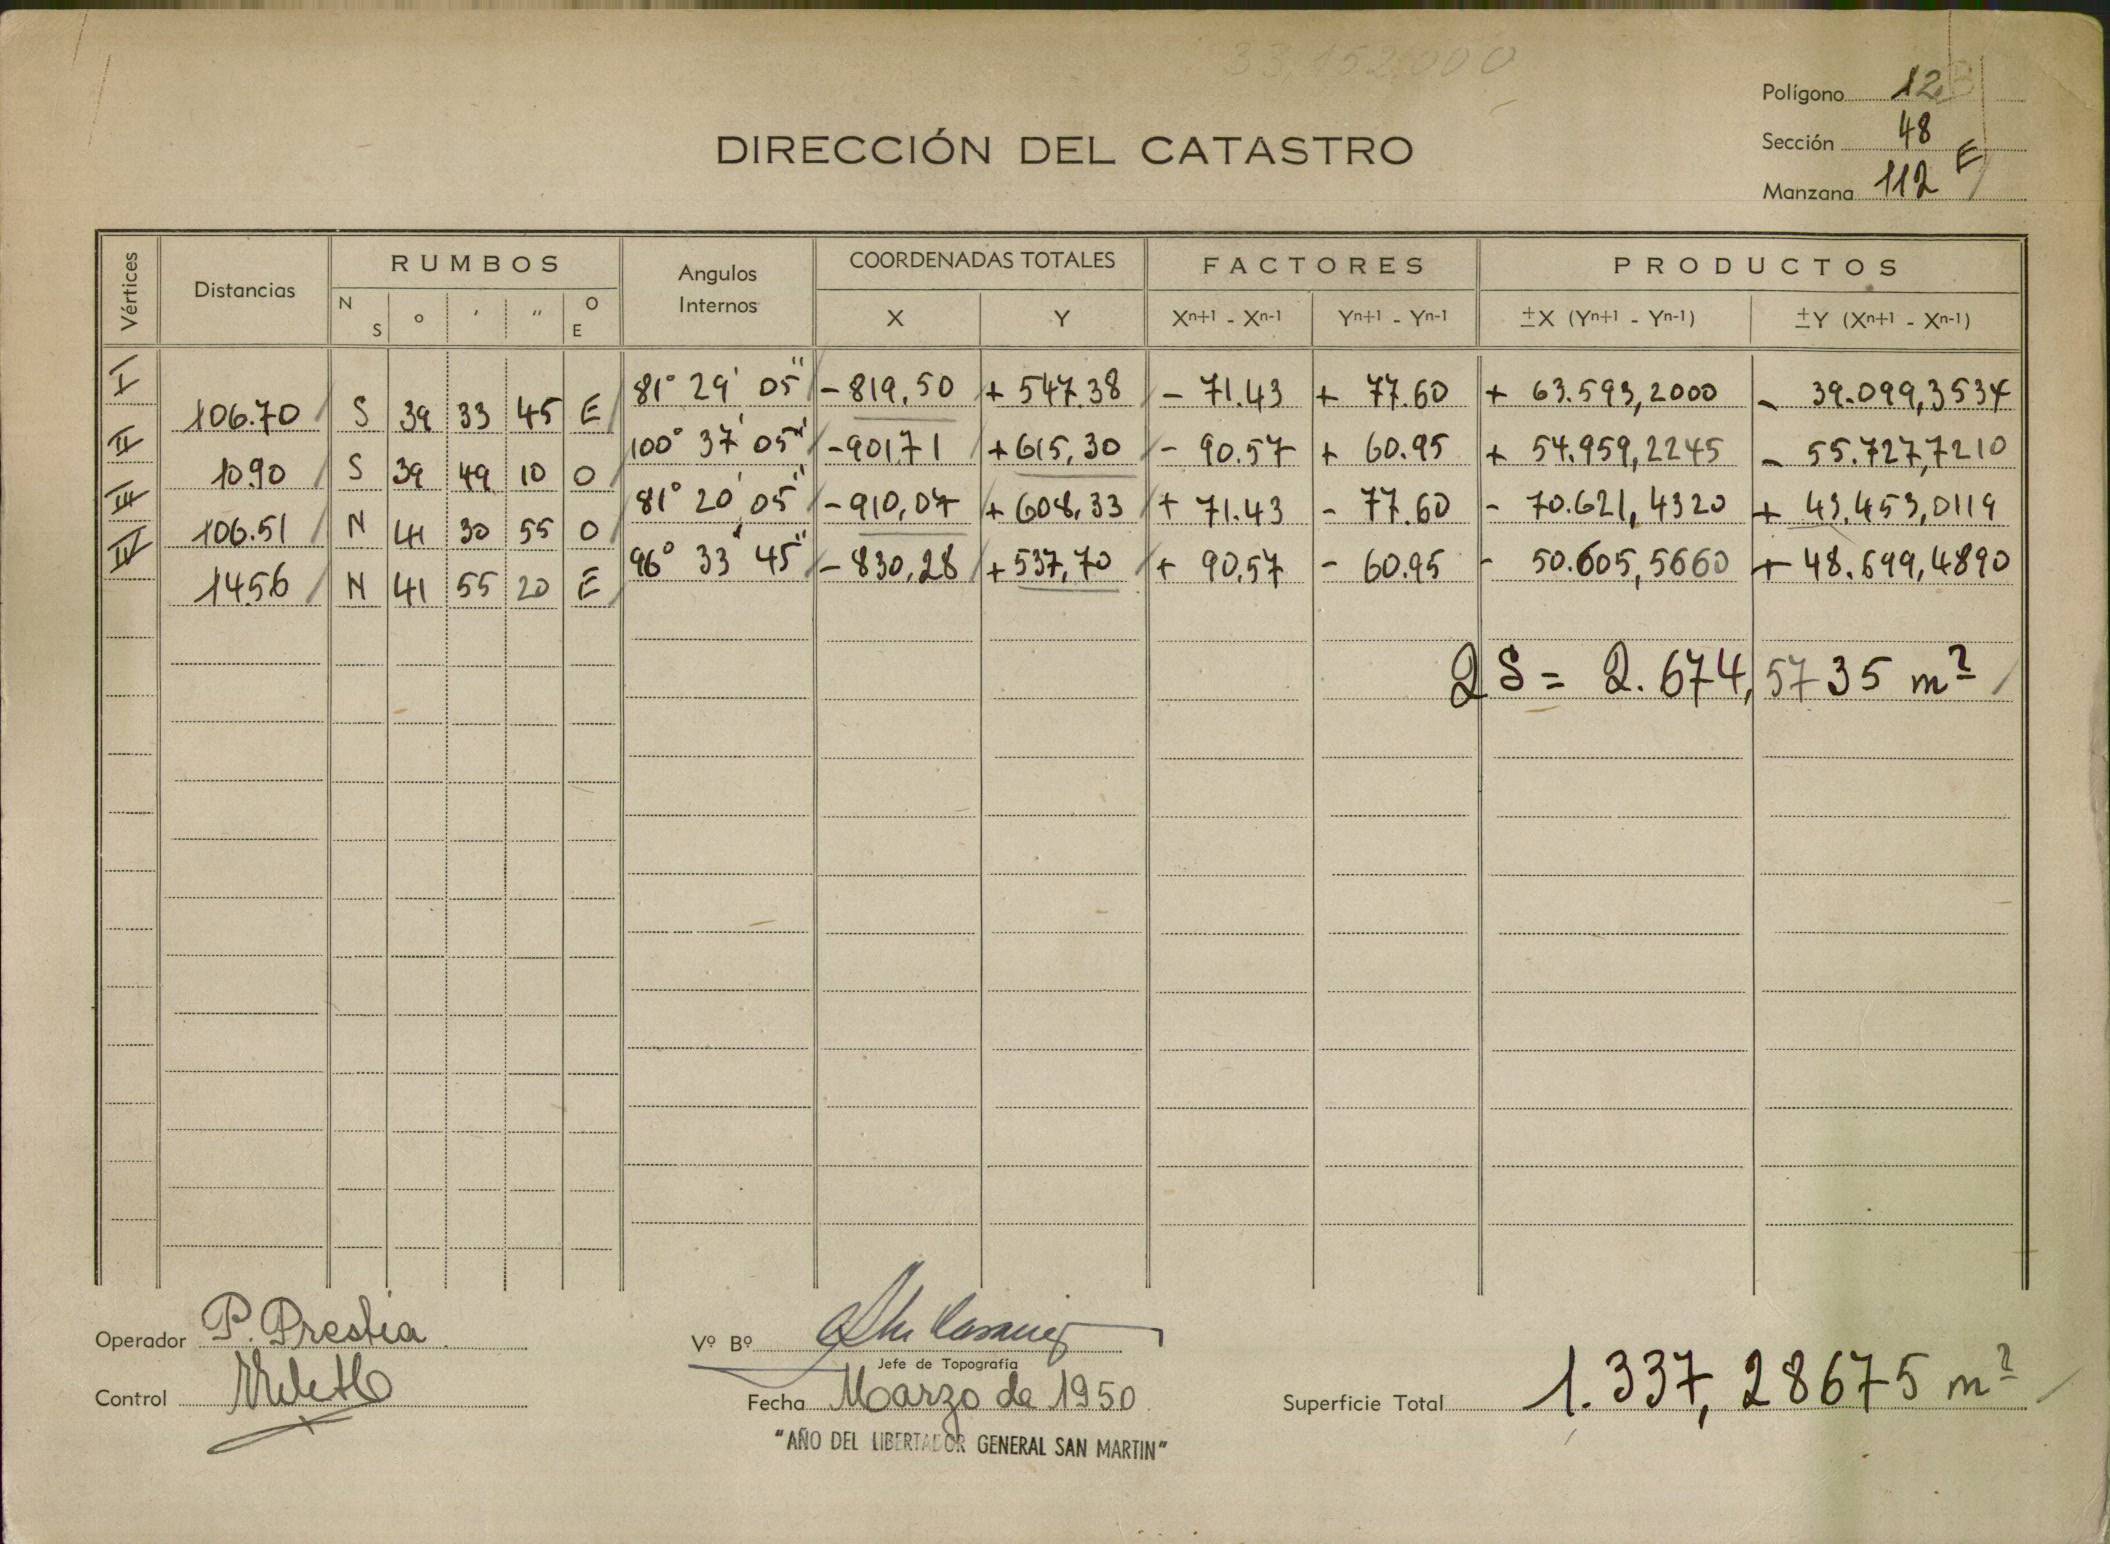 33.152.000
Polígono 12 B
DIRECCIÓN DEL CATASTRO
Sección 48
Manzana 112 E
Vértices Distancias RUMBOS Angulos Internos COORDENADAS TOTALES FACTORES PRODUCTOS
N S ° ′ ″ O E X Y Xⁿ⁺¹ - Xⁿ⁻¹ Yⁿ⁺¹ - Yⁿ⁻¹ ±X (Yⁿ⁺¹ - Yⁿ⁻¹) ±Y (Xⁿ⁺¹ - Xⁿ⁻¹)
I 81° 29' 05" - 819,50 + 547.38 - 71.43 + 77.60 + 63.593,2000 - 39.099,3534
106.70 S 39 33 45 E
II 100° 37' 05" - 901.71 + 615,30 - 90.57 + 60.95 + 54.959,2245 - 55.727,7210
10.90 S 39 49 10 O
III 81° 20' 05" - 910,07 + 608,33 + 71.43 - 77.60 - 70.621,4320 + 43.453,0119
106.51 N 41 30 55 O
IV 96° 33' 45" - 830,28 + 537,70 + 90,57 - 60.95 - 50.605,5660 + 48.699,4890
14.56 N 41 55 20 E
2 S = 2.674,5735 m²
Operador P. Prestia
Vº Bº
Jefe de Topografía
Control
Fecha Marzo de 1950
Superficie Total 1.337,28675 m²
"AÑO DEL LIBERTADOR GENERAL SAN MARTIN"